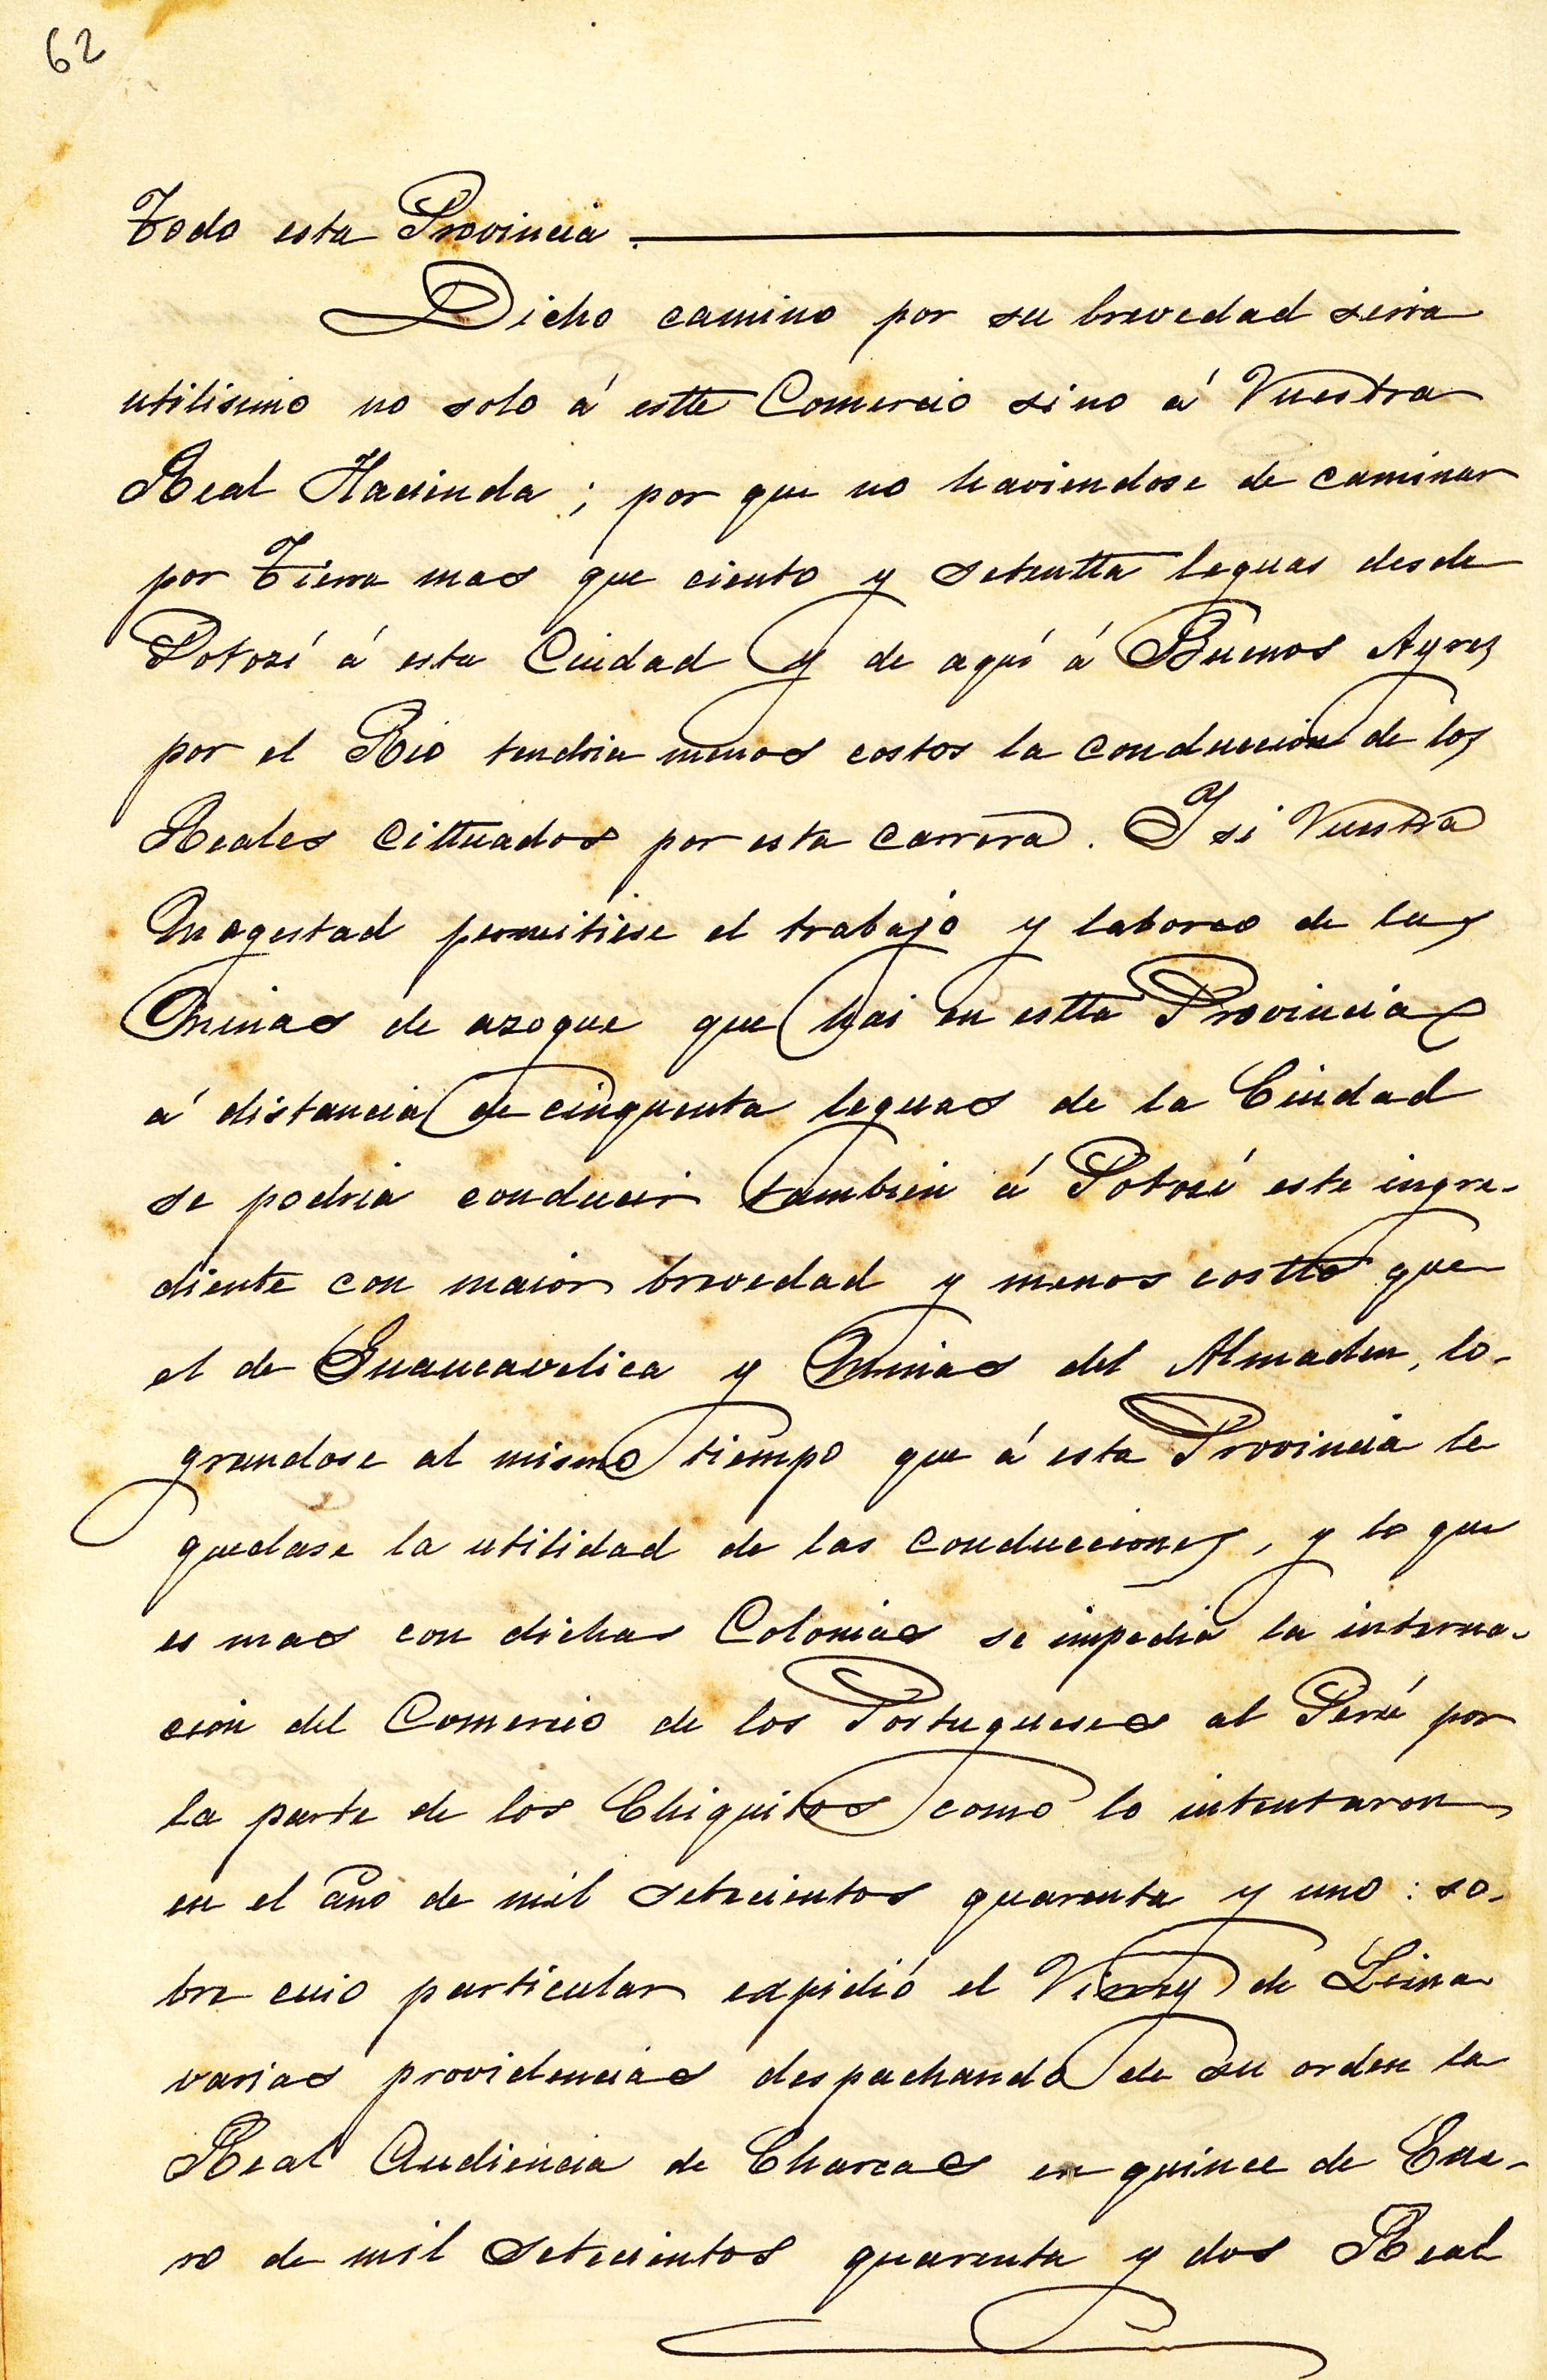 62
Todo esta Provincia.
Dicho camino por su brevedad seria
utilisimo no solo á estte Comercio sino á Vuestra
Real Hacienda; por que no haviendose de caminar
por Tierra mas que ciento y setentta leguas desde
Potozí á esta Ciudad y de aquí á Buenos Ayres
por el Rio tendria menos costos la conduccion de los
Reales Cittuados por esta carrera. Y si Vuestra
Magestad permitiese el trabajo y laboreo de las
Minas de azogue que hai en estta Provincia
á distancia de cinquenta leguas de la Ciudad
se podria conducir tambien á Potozí este ingre-
diente con maior brevedad y menos costto que
el de Guancavelica y Minas del Almaden, lo-
grandose al mismo tiempo que á esta Provincia le
quedase la utilidad de las conducciones, y lo que
es mas con dichas Colonias se impedia la interna-
cion del Comercio de los Portugueses al Perú por
la parte de los Chiquitos como lo intentaron
en el año de mil setecientos quarenta y uno: so-
bre cuio particular expidió el Virrey de Lima
varias providencias despachando de su orden la
Real Audiencia de Charcas en quince de Ene-
ro de mil setecientos quarenta y dos Real